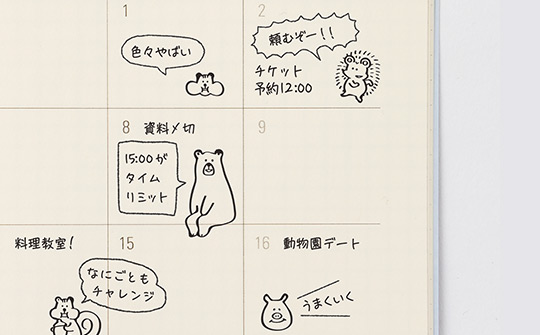 1
2
色々やばい
頼むぞー!!
チケット
予約12:00
8
資料〆切
9
15:00が
タイム
リミット
料理教室!
15
16
動物園デート
なにごとも
チャレンジ
うまくいく